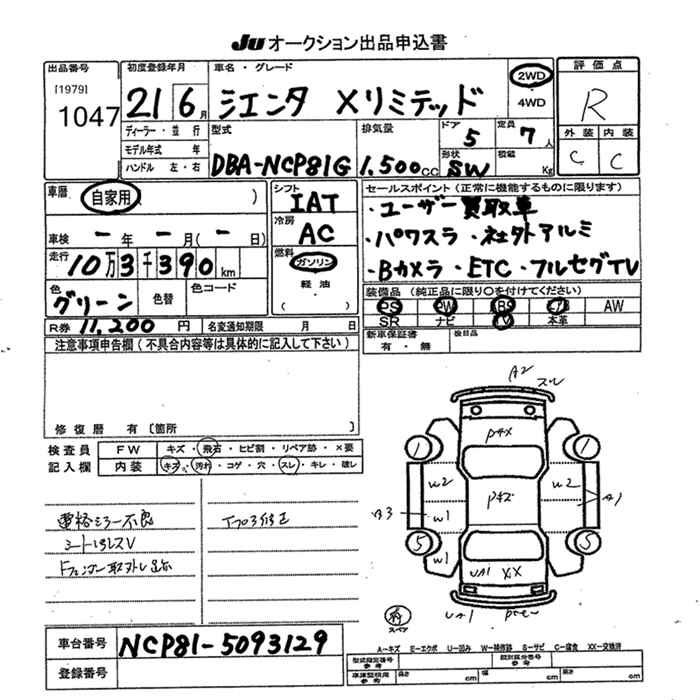 JU オークション出品申込書
出品番号 初度登録年月 車名・グレード 評価点
[1979]
1047
21 6月 シエンタ Xリミテッド 2WD
・
4WD
R
ディーラー・並行 型式 排気量 ドア 定員 外装 内装
モデル年式 年 5 7人
ハンドル 左・右 DBA-NCP81G 1.500cc 形状 SW 積載 Kg C C
車暦 自家用 ( ) シフト IAT セールスポイント (正常に機能するものに限ります)
・ユーザー買取車
車検 ー年 ー月(ー日) 冷房 AC ・パワスラ ・社外アルミ
走行 10万3千390km 燃料 ガソリン ・Bカメラ ・ETC ・フルセグTV
色 グリーン 色替 色コード 軽油
( )
装備品 (純正品に限り○を付けてください)
PS PW ABS エアB AW
R券 11,200円 名変通知期限 月 日 SR ナビ TV 本革
新車保証書 有・無 後日品
注意事項申告欄 (不具合内容等は具体的に記入して下さい)
修復暦 有 [箇所
検査員 FW キズ・飛石・ヒビ割・リペア跡・×要
記入欄 内装 キズ・汚れ・コゲ・穴・スレ・キレ・雄レ
A2
スレ
1 1
W2 W2
B3 W1 A1
電格ミラー不良
シート汚レスレ
5 5
W1
UA1 XX
UA1
スペア
車台番号 NCP81-5093129
登録番号
A−キズ E−エクボ U−凹み W−補修跡 S−サビ C−腐食 XX−交換済
型式指定番号 類別区分番号
車庫証明用参考 長さ cm 幅 cm 高さ cm